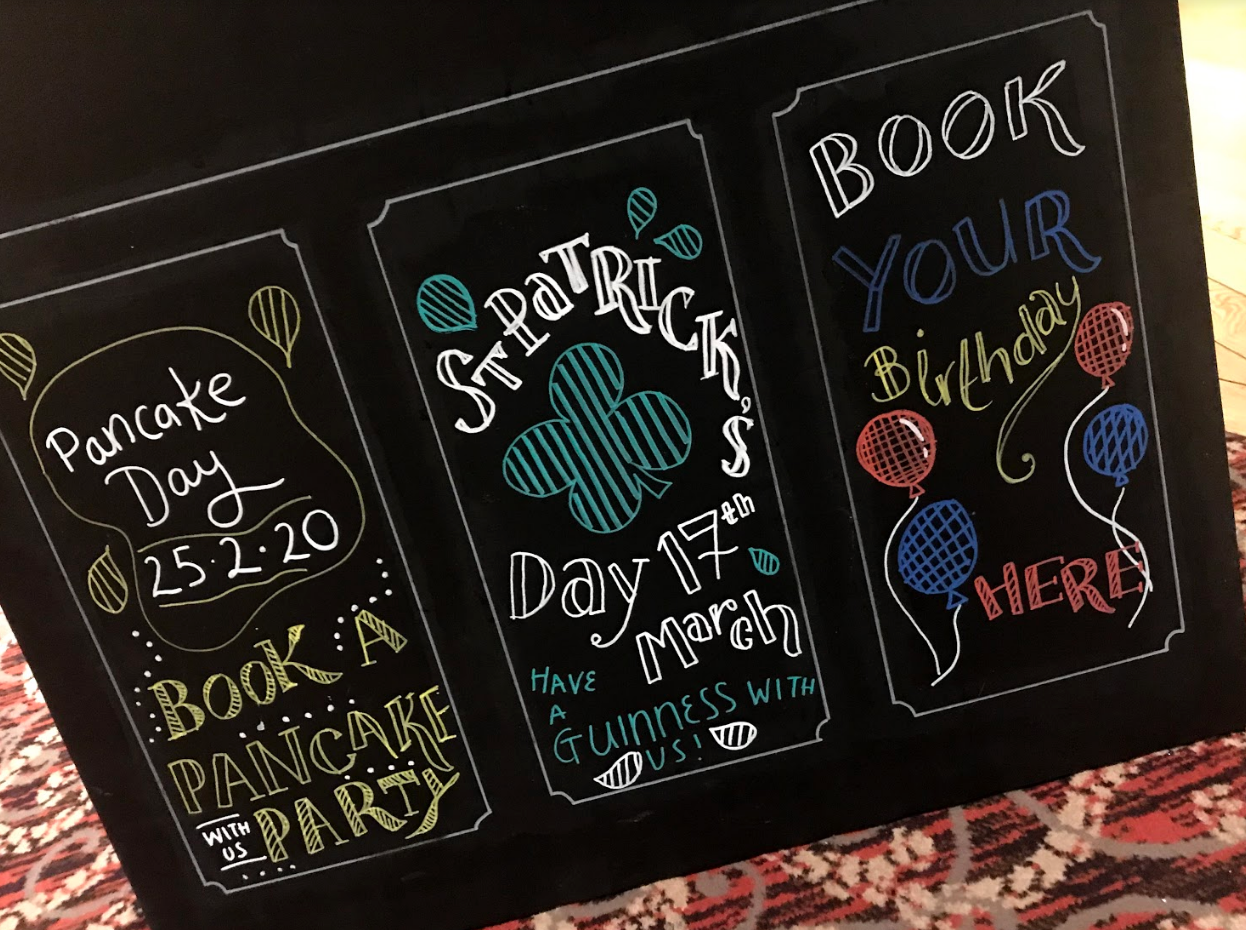 Pancake
Day
25.2.20
BOOK A
PANCAKE
WITH
US
PARTY
ST PATRICK'S
Day 17th
March
HAVE
A
GUINNESS WITH
US!
BOOK
YOUR
Birthday
HERE